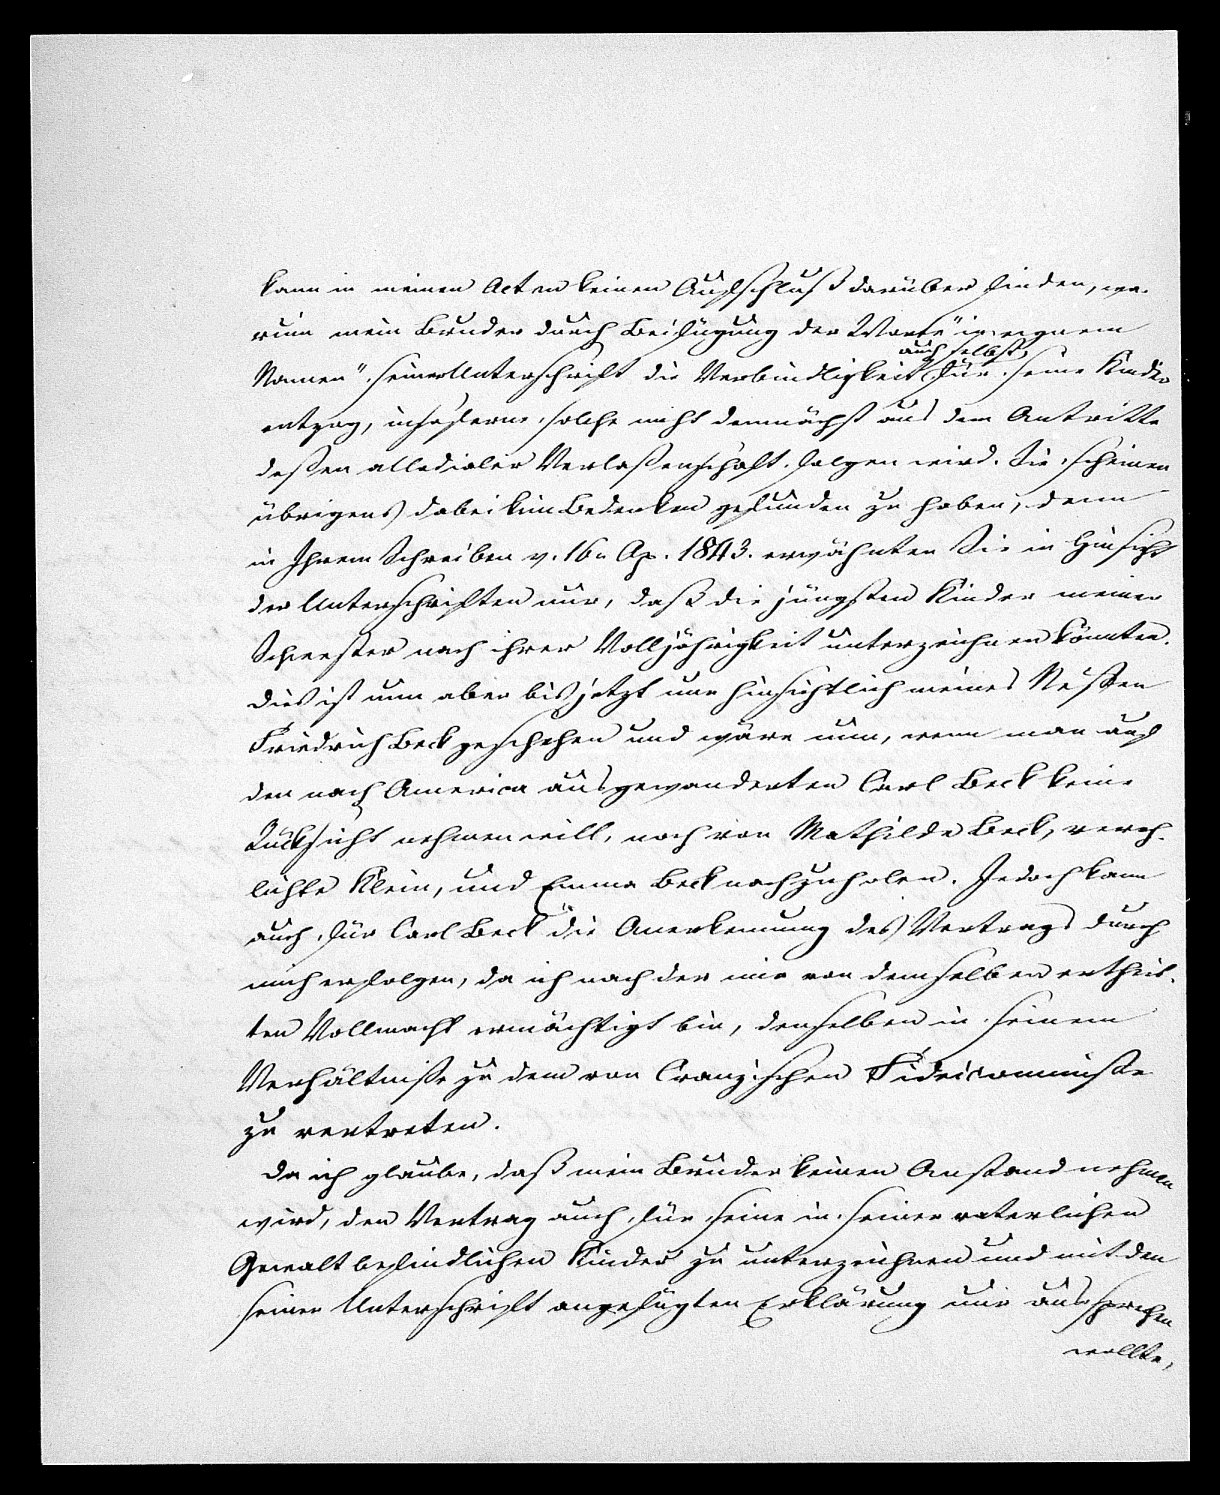 kann in meinen Acten keinen Aufschluß darüber finden, wa-
rum mein Bruder durch Beifügung der Worte "in eignem
auch selbst
Namen" seiner Unterschrift die Verbindlichkeit für seine Kinder
entzog, insoferne solche nicht demnächst aus dem Antritte
deßen allodialer Verlaßenschaft folgen wird. Sie scheinen
übrigens dabei kein Bedenken gefunden zu haben, denn
in Ihrem Schreiben v. 16n Ap. 1843. erwähnten Sie in Hinsicht
der Unterschriften nur, daß die jüngsten Kinder meiner
Schwester nach ihrer Volljährigkeit unterzeichnen könnten.
dies ist nun aber bis jetzt nur hinsichtlich meines Neffen
Friedrich Beck geschehen und wäre nun, wenn man auf
den nach America ausgewanderten Carl Beck keine
Rücksicht nehmen will, noch von Mathilde Beck, vereh-
lichte Klein, und Emma Beck nachzuholen. Jedoch kann
auch für Carl Beck die Anerkennung des Vertrags durch
mich erfolgen, da ich nach der mir von demselben ertheil-
ten Vollmacht ermächtigt bin, denselben in seinem
Verhältniße zu dem von Cranzischen Fideicommiße
zu vertreten.
Da ich glaube, daß mein Bruder keinen Anstand nehmen
wird, den Vertrag auch für seine in seiner vaterlichen
Gewalt befindlichen Kinder zu unterzeichnen und mit der
seiner Unterschrift angefügten Erklärung nur aussprechen
wollte,